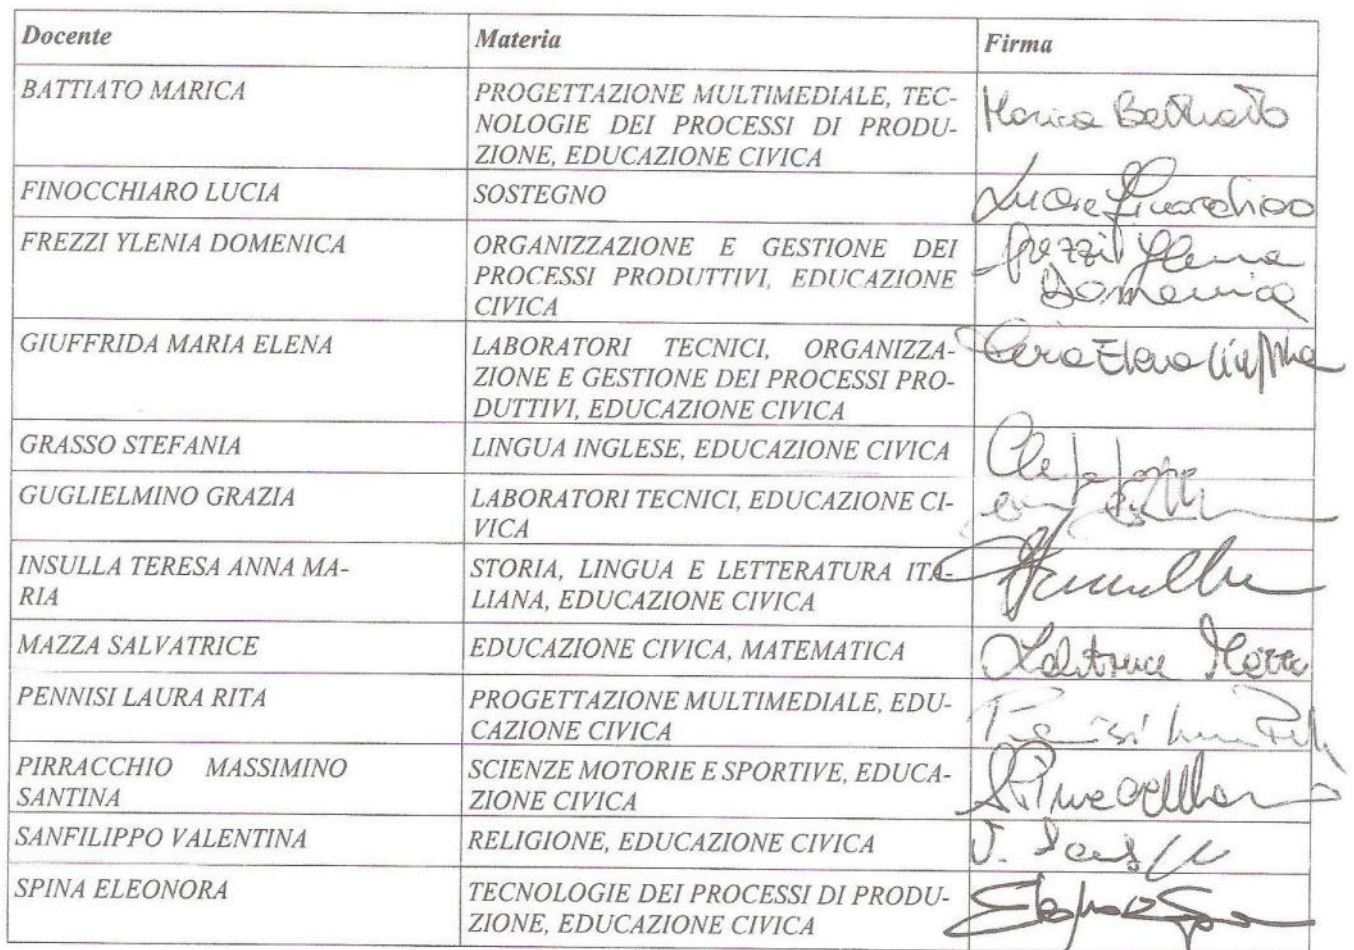 Docente Materia Firma
BATTIATO MARICA PROGETTAZIONE MULTIMEDIALE, TEC-
NOLOGIE DEI PROCESSI DI PRODU-
ZIONE, EDUCAZIONE CIVICA
Marica Battiato
FINOCCHIARO LUCIA SOSTEGNO
Lucia Finocchiaro
FREZZI YLENIA DOMENICA ORGANIZZAZIONE E GESTIONE DEI
PROCESSI PRODUTTIVI, EDUCAZIONE
CIVICA
Frezzi Ylenia
Domenica
GIUFFRIDA MARIA ELENA LABORATORI TECNICI, ORGANIZZA-
ZIONE E GESTIONE DEI PROCESSI PRO-
DUTTIVI, EDUCAZIONE CIVICA
Maria Elena Giuffrida
GRASSO STEFANIA LINGUA INGLESE, EDUCAZIONE CIVICA
GUGLIELMINO GRAZIA LABORATORI TECNICI, EDUCAZIONE CI-
VICA
INSULLA TERESA ANNA MA-
RIA
STORIA, LINGUA E LETTERATURA ITA-
LIANA, EDUCAZIONE CIVICA
MAZZA SALVATRICE EDUCAZIONE CIVICA, MATEMATICA
Salvatrice Mazza
PENNISI LAURA RITA PROGETTAZIONE MULTIMEDIALE, EDU-
CAZIONE CIVICA
Pennisi Laura Rita
PIRRACCHIO MASSIMINO
SANTINA
SCIENZE MOTORIE E SPORTIVE, EDUCA-
ZIONE CIVICA
SANFILIPPO VALENTINA RELIGIONE, EDUCAZIONE CIVICA
SPINA ELEONORA TECNOLOGIE DEI PROCESSI DI PRODU-
ZIONE, EDUCAZIONE CIVICA
Eleonora Spina